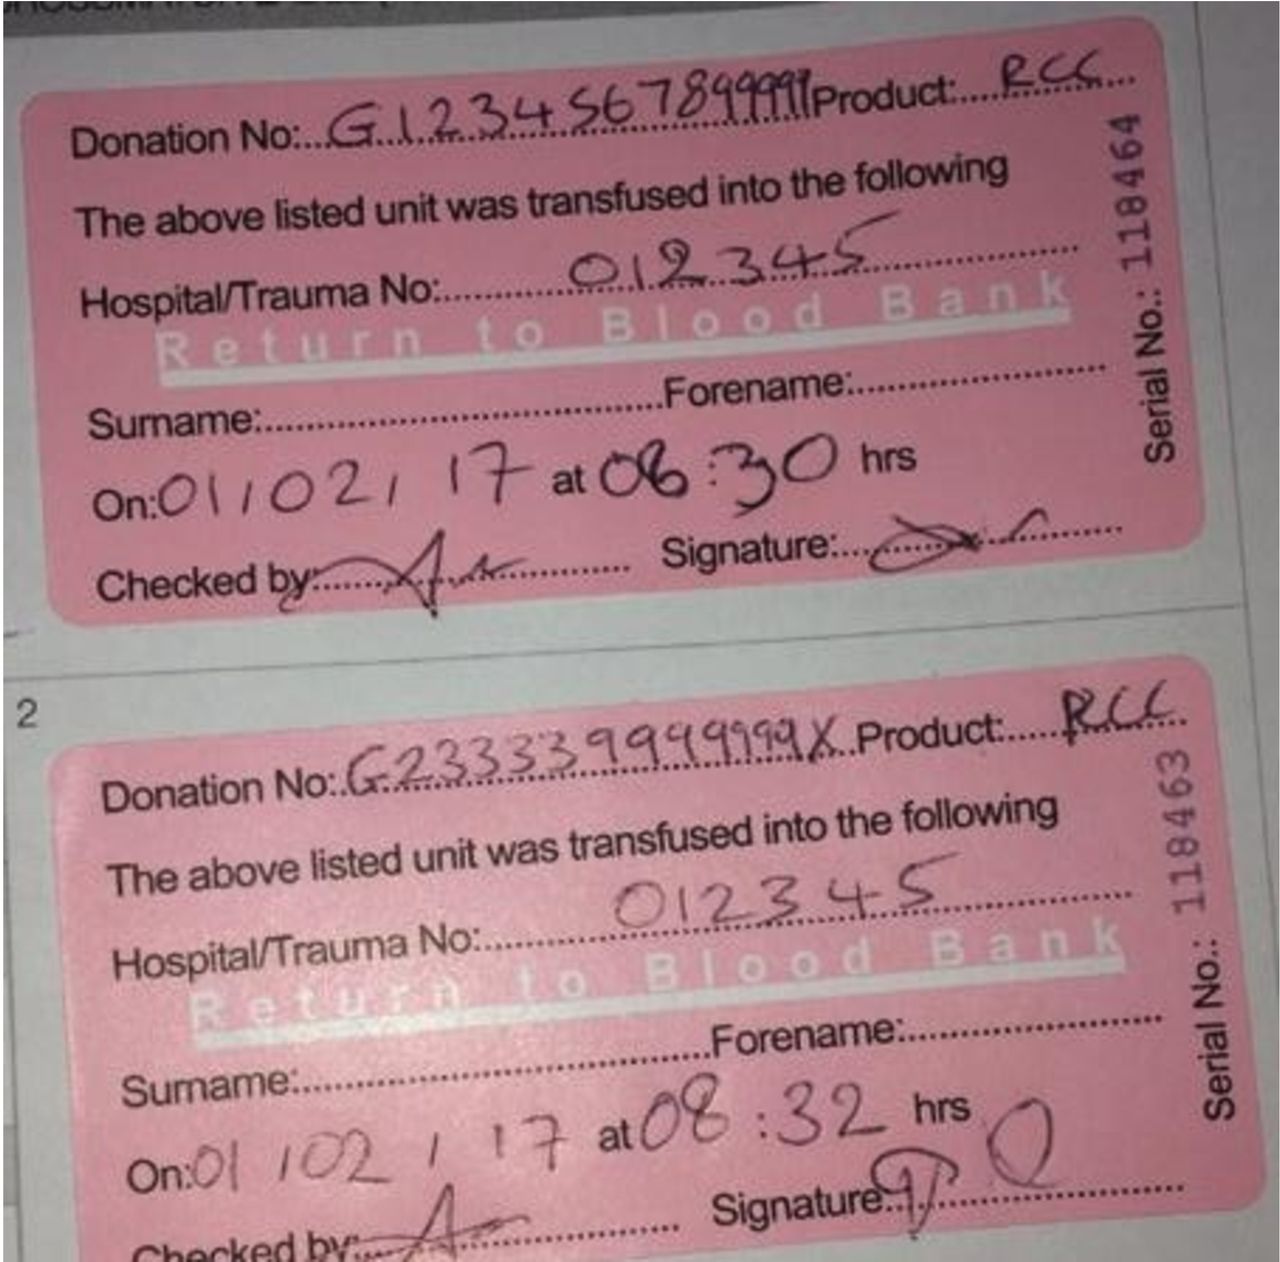 Donation No:...G1234567899999 Product:....RCC...
The above listed unit was transfused into the following
Hospital/Trauma No:....012345....
Return to Blood Bank
Surname:....Forename:....
On:01/02/17 at 08:30 hrs
Checked by:.... Signature:....
Serial No.: 118464
2
Donation No:..G2333399999999X..Product:....RCC...
The above listed unit was transfused into the following
Hospital/Trauma No:....012345....
Return to Blood Bank
Surname:....Forename:....
On:01/02/17 at 08:32 hrs
Checked by:.... Signature:....
Serial No.: 118463